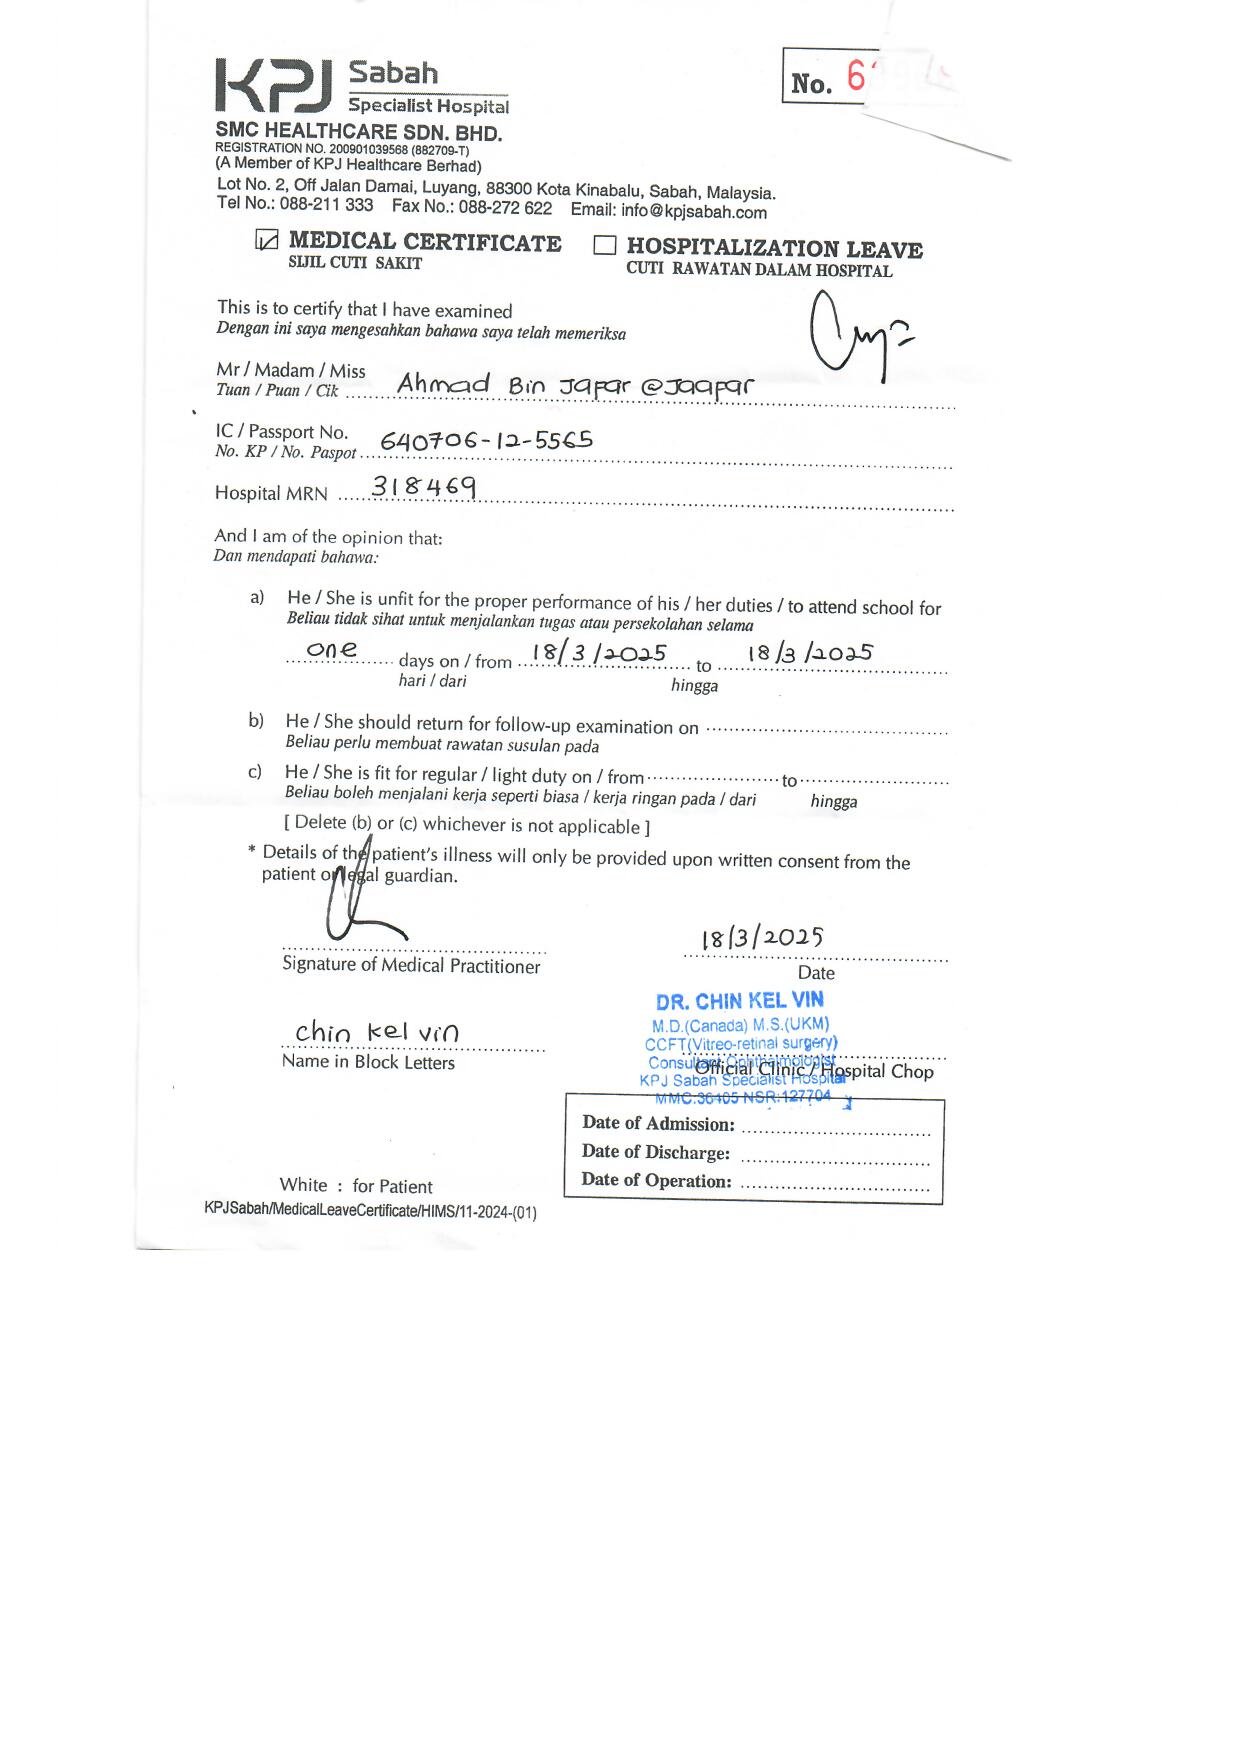 KPJ Sabah
Specialist Hospital
No. 6
SMC HEALTHCARE SDN. BHD.
REGISTRATION NO. 200901039568 (882709-T)
(A Member of KPJ Healthcare Berhad)
Lot No. 2, Off Jalan Damai, Luyang, 88300 Kota Kinabalu, Sabah, Malaysia.
Tel No.: 088-211 333 Fax No.: 088-272 622 Email: info@kpjsabah.com
MEDICAL CERTIFICATE HOSPITALIZATION LEAVE
SIJIL CUTI SAKIT CUTI RAWATAN DALAM HOSPITAL
This is to certify that I have examined
Dengan ini saya mengesahkan bahawa saya telah memeriksa
Mr / Madam / Miss
Tuan / Puan / Cik Ahmad Bin Japar @Jaapar
IC / Passport No.
No. KP / No. Paspot 640706-12-5565
Hospital MRN 318469
And I am of the opinion that:
Dan mendapati bahawa:
a) He / She is unfit for the proper performance of his / her duties / to attend school for
Beliau tidak sihat untuk menjalankan tugas atau persekolahan selama
one days on / from 18/3/2025 to 18/3/2025
hari / dari hingga
b) He / She should return for follow-up examination on
Beliau perlu membuat rawatan susulan pada
c) He / She is fit for regular / light duty on / from to
Beliau boleh menjalani kerja seperti biasa / kerja ringan pada / dari hingga
[ Delete (b) or (c) whichever is not applicable ]
* Details of the patient's illness will only be provided upon written consent from the
patient or legal guardian.
18/3/2025
Signature of Medical Practitioner Date
DR. CHIN KEL VIN
M.D.(Canada) M.S.(UKM)
CCFT(Vitreo-retinal surgery)
Consultant Ophthalmologist
KPJ Sabah Specialist Hospital
MMC:36405 NSR:127704
chin kel vin
Name in Block Letters Official Clinic / Hospital Chop
Date of Admission:
Date of Discharge:
Date of Operation:
White : for Patient
KPJSabah/MedicalLeaveCertificate/HIMS/11-2024-(01)